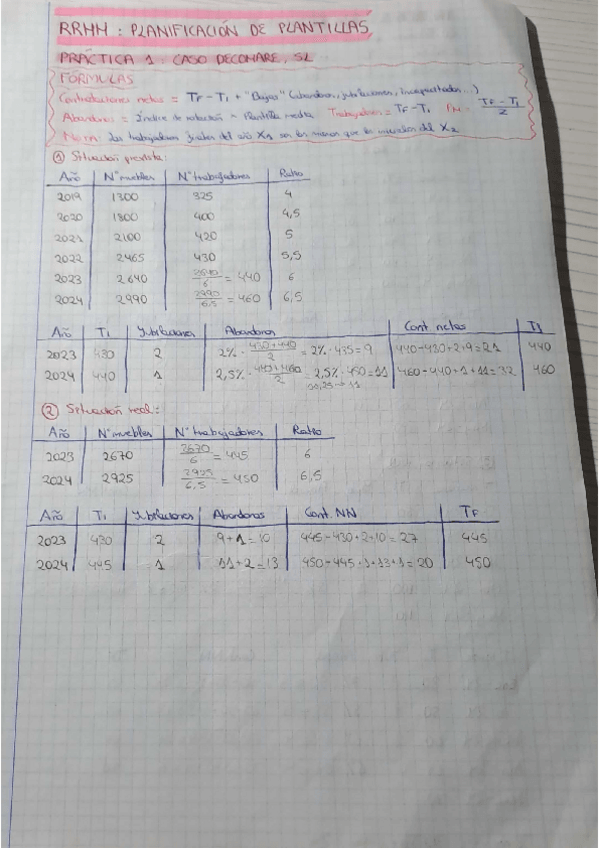 RRHH : PLANIFICACIÓN DE PLANTILLAS
PRÁCTICA 1 : CASO DECOMARE, SL
FÓRMULAS
Contrataciones netas = TF - TI + "Bajas" (abandonos, jubilaciones, incapacitados...)
Abandonos = Índice de rotación × Plantilla media Trabajadores = TF - TI PM = TF - TI / 2
Norm: Los trabajadores finales del año X1 son los mismos que los iniciales del X2
① Situación prevista:
Año Nº muebles Nº trabajadores Ratio
2019 1300 325 4
2020 1800 400 4,5
2021 2100 420 5
2022 2465 430 5,5
2023 2640 2640/6 = 440 6
2024 2990 2990/6,5 = 460 6,5
Año TI Jubilaciones Abandonos Cont. netas Tf
2023 430 2 2% · 430+440/2 = 2% · 435 = 9 440-430+2+9 = 21 440
2024 440 1 2,5% · 440+460/2 = 2,5% · 450 = 11 460-440+1+11 = 32 460
② Situación real:
Año Nº muebles Nº trabajadores Ratio
2023 2670 2670/6 = 445 6
2024 2925 2925/6,5 = 450 6,5
Año TI Jubilaciones Abandonos Cont. NN TF
2023 430 2 9+1 = 10 445-430+2+10 = 27 445
2024 445 1 11+2 = 13 450-445+1+13+1 = 20 450